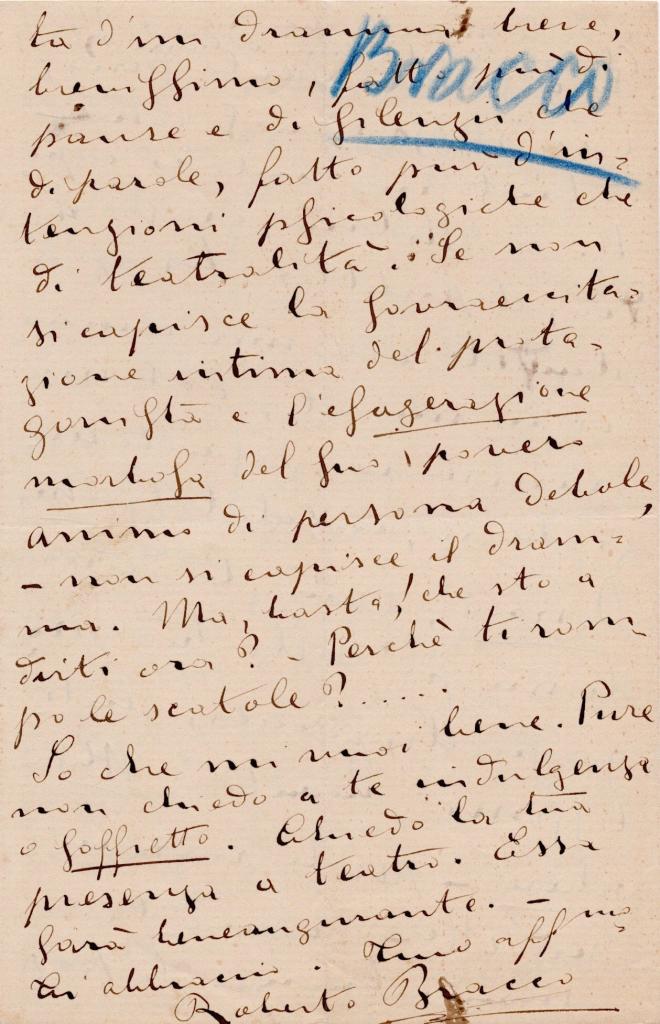 ta d'un dramma breve,
Bracco
brevissimo, fatto più di
pause e di silenzii che
di parole, fatto più d'in=
tenzioni psicologiche che
di teatralità. Se non
si capisce la sovraeccita=
zione intima del prota=
gonista e l'esagerazione
morbosa del suo povero
animo di persona debole,
– non si capisce il dram=
ma. Ma, basta! che sto a
dirti ora? – Perchè ti rom=
po le scatole?.....
So che mi vuoi bene. Pure
non chiedo a te indulgenza
o soffietto. Chiedo la tua
presenza a teatro. Essa
sarà beneaugurante. –
Ti abbraccio. Tuo affmo
Roberto Bracco